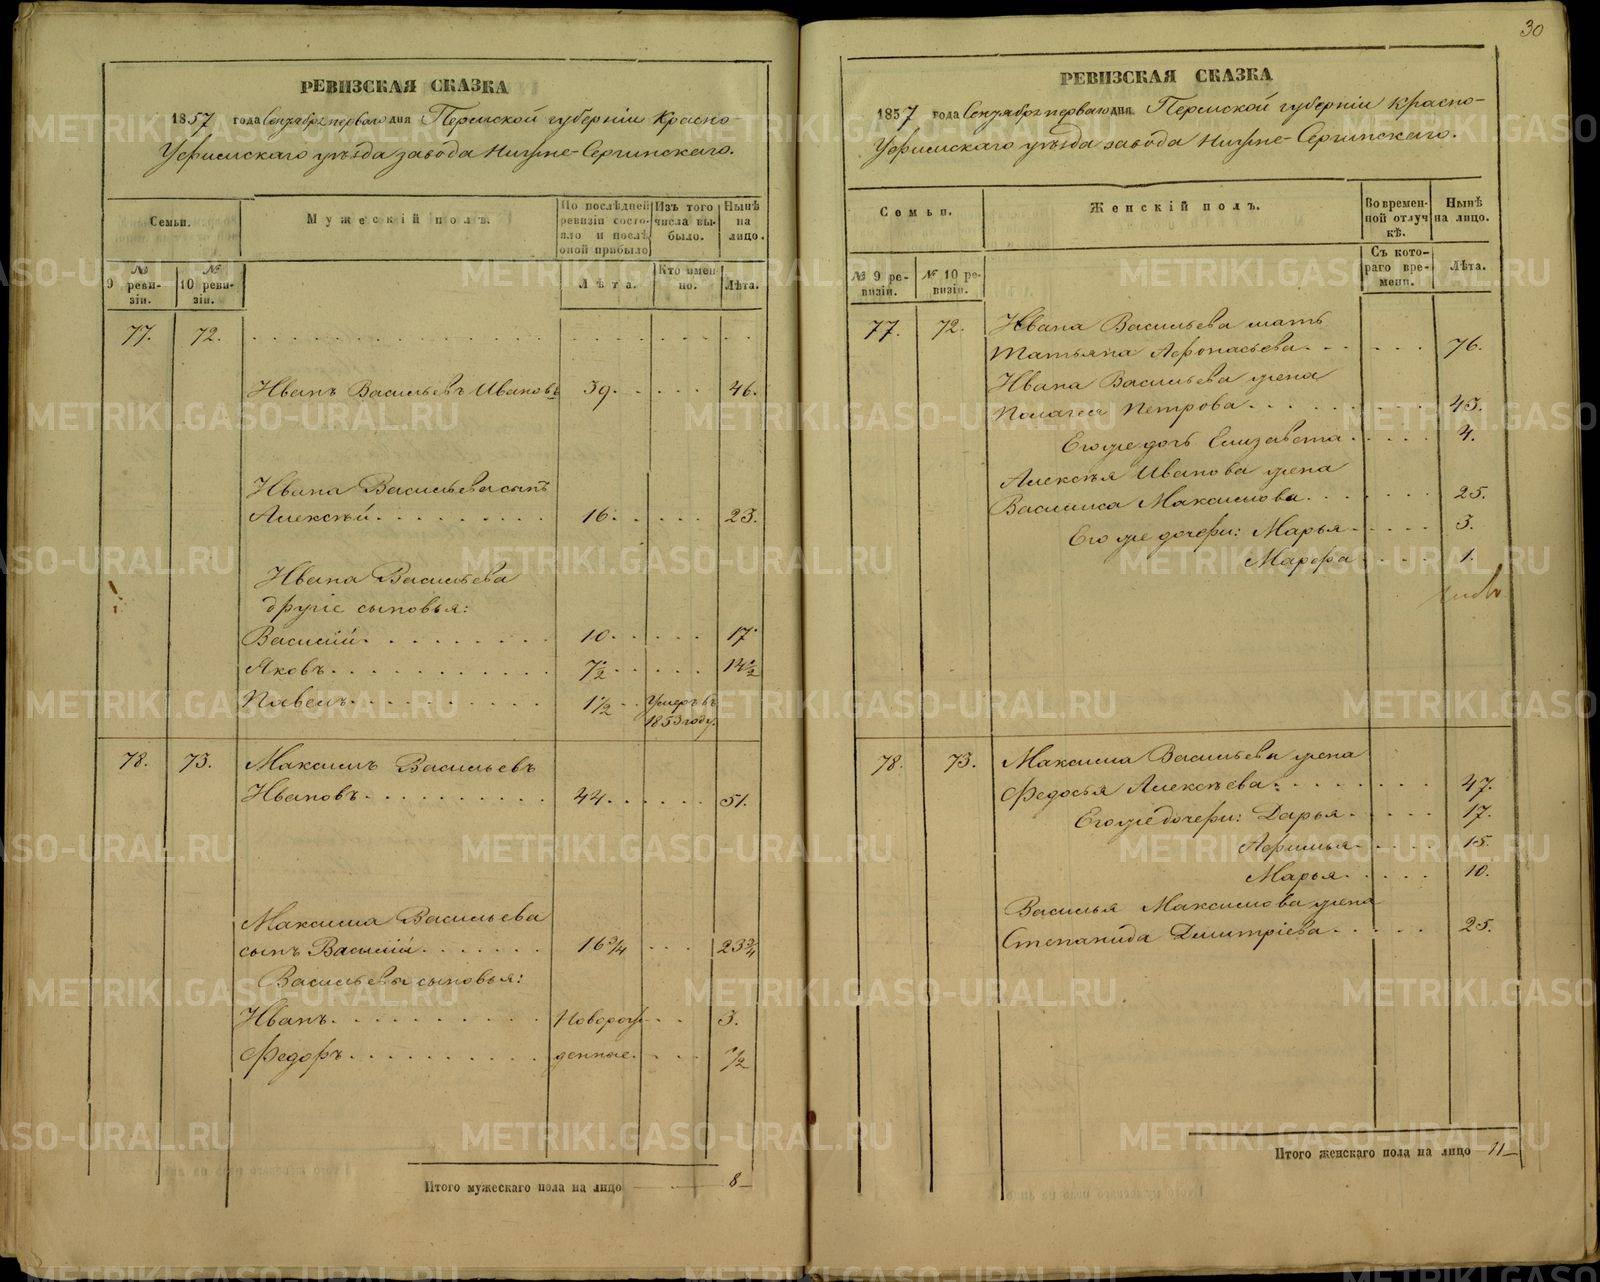 РЕВИЗСКАЯ СКАЗКА
1857 года Сентября перваго дня Пермской губерніи Красно-
Уфимскаго уѣзда завода Нижне-Сергинскаго.
Семьи.
Мужескій полъ.
По послѣдней ревизіи состояло и послѣ оной прибыло
Изъ того числа выбыло.
Нынѣ на лицо.
№ 9 ревизіи.
№ 10 ревизіи.
Лѣта.
Кто именно.
Лѣта.
77. 72.
Иванъ Васильевъ Ивановъ 39. 46.
Ивана Васильева сынъ
Алексѣй 16. 23.
Ивана Васильева
другіе сыновья:
Василій 10 17
Яковъ 7½ 14½
Павелъ 1½ Умеръ въ
1853 году.
78. 73. Максимъ Васильевъ
Ивановъ 44. 51.
Максима Васильева
сынъ Василій 16 3/4 23 3/4
Васильевы сыновья:
Иванъ Новорож 3.
Федоръ денные. ½
Итого мужескаго пола на лицо 8
30
РЕВИЗСКАЯ СКАЗКА
1857 года Сентября перваго дня Пермской губерніи Красно-
Уфимскаго уѣзда завода Нижне-Сергинскаго.
Семьи.
Женскій полъ.
Во временной отлучкѣ.
Нынѣ на лицо.
№ 9 ревизіи.
№ 10 ревизіи.
Съ котораго времени.
Лѣта.
77. 72. Ивана Васильева мать
Татьяна Афонасьева 76.
Ивана Васильева жена
Полагея Петрова 45.
Его же дочь Елизавета 4.
Алексѣя Иванова жена
Василиса Максимова 25.
Его же дочери: Марья 3.
Марфа 1.
78. 73. Максима Васильева жена
Федосья Алексѣева 47.
Его же дочери: Дарья 17.
Афимья 15.
Марья 10.
Василья Максимова жена
Степанида Дмитріева 25.
Итого женскаго пола на лицо 11
METRIKI.GASO-URAL.RU